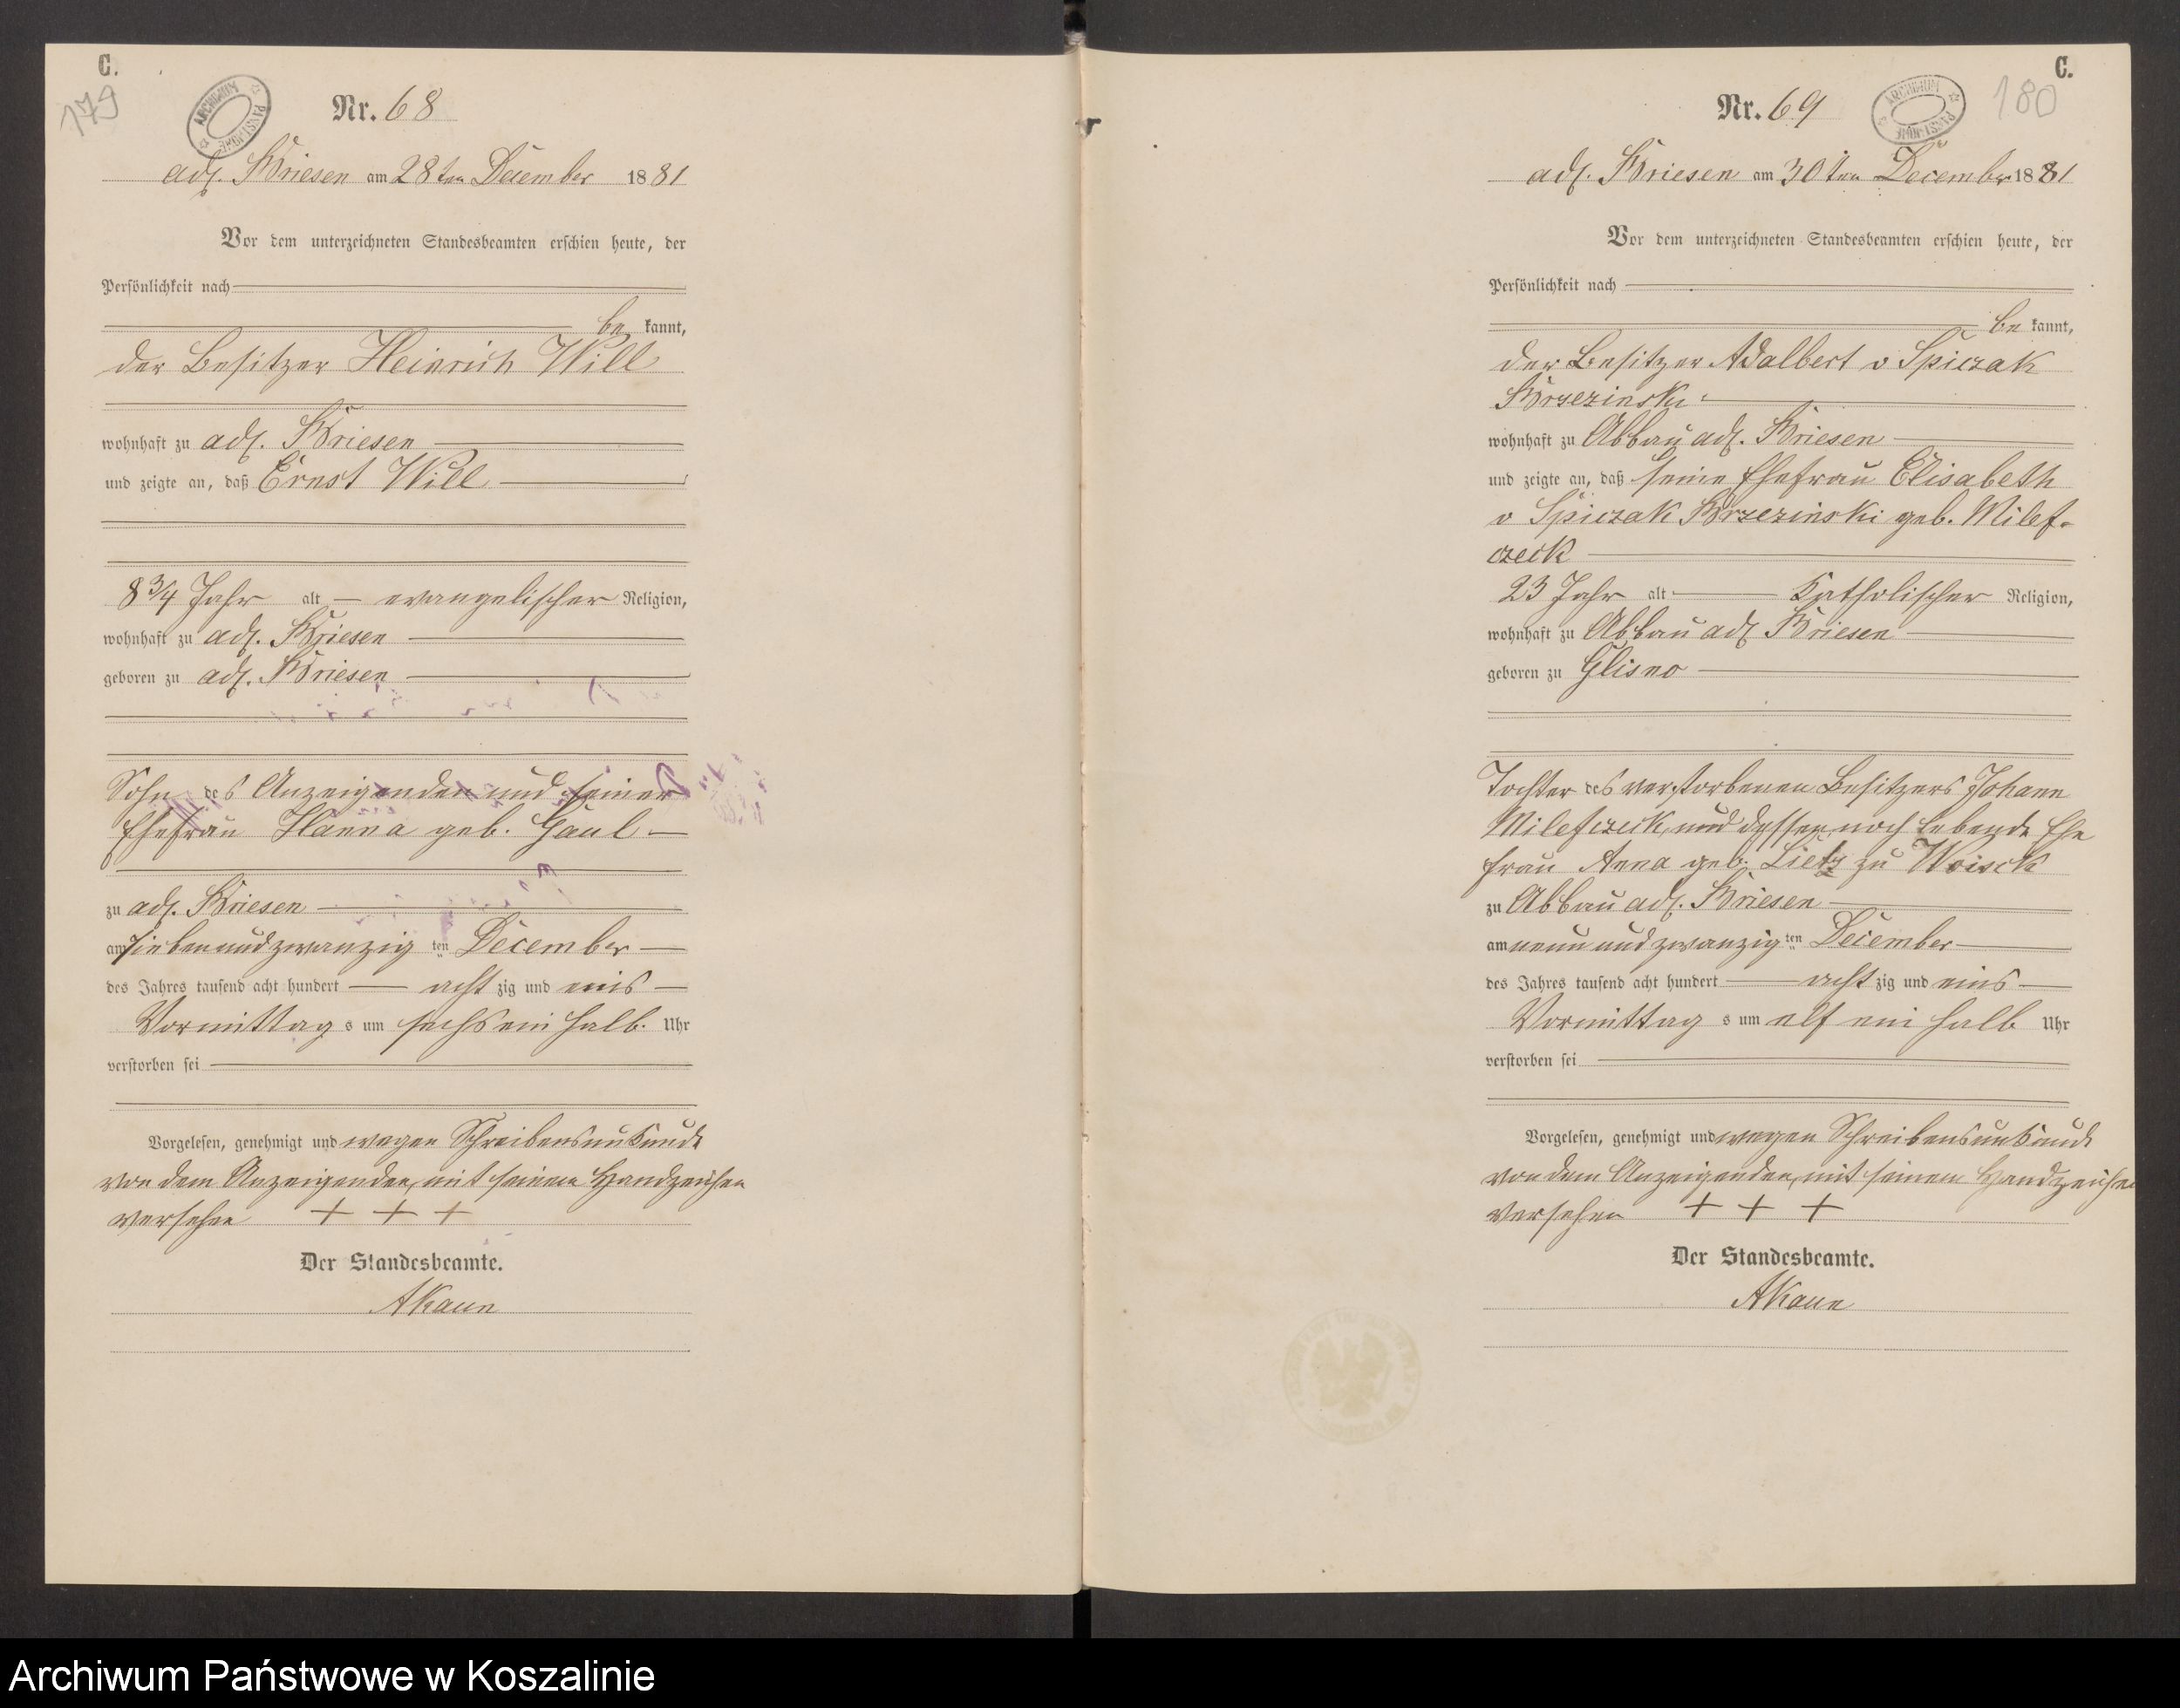 C.
179
ARCHIWUM PAŃSTWOWE
Nr. 68
adl. Briesen am 28ten December 1881
Vor dem unterzeichneten Standesbeamten erschien heute, der
Persönlichkeit nach
be kannt,
der Besitzer Heinrich Will
wohnhaft zu adl. Briesen
und zeigte an, daß Ernst Will
8 3/4 Jahr alt — evangelischer Religion,
wohnhaft zu adl. Briesen
geboren zu adl. Briesen
Sohn des Anzeigenden und seiner
Ehefrau Hanna geb. Gaul
zu adl. Briesen
am siebenundzwanzig ten December
des Jahres tausend acht hundert acht zig und eins
Vormittag s um sechs ein halb Uhr
verstorben sei
Vorgelesen, genehmigt und wegen Schreibensunkunde
von dem Anzeigenden, mit seinem Handzeichen
versehen + + +
Der Standesbeamte.
C.
180
ARCHIWUM PAŃSTWOWE
Nr. 69
adl. Briesen am 30ten December 1881
Vor dem unterzeichneten Standesbeamten erschien heute, der
Persönlichkeit nach
be kannt,
der Besitzer Adalbert v Spiczak
Brzezinski
wohnhaft zu Abbau adl. Briesen
und zeigte an, daß seine Ehefrau Elisabeth
v Spiczak Brzezinski geb. Milef-
czeck
23 Jahr alt Katholischer Religion,
wohnhaft zu Abbau adl Briesen
geboren zu Glisno
Tochter des verstorbenen Besitzers Johann
Milefczeck, und dessen noch lebende Ehe
frau Anna geb. Lietz zu
zu Abbau adl. Briesen
am neun und zwanzig ten December
des Jahres tausend acht hundert acht zig und eins
Vormittag s um elf ein halb Uhr
verstorben sei
Vorgelesen, genehmigt und wegen Schreibensunkunde
von dem Anzeigenden, mit seinem Handzeichen
versehen + + +
Der Standesbeamte.
Archiwum Państwowe w Koszalinie